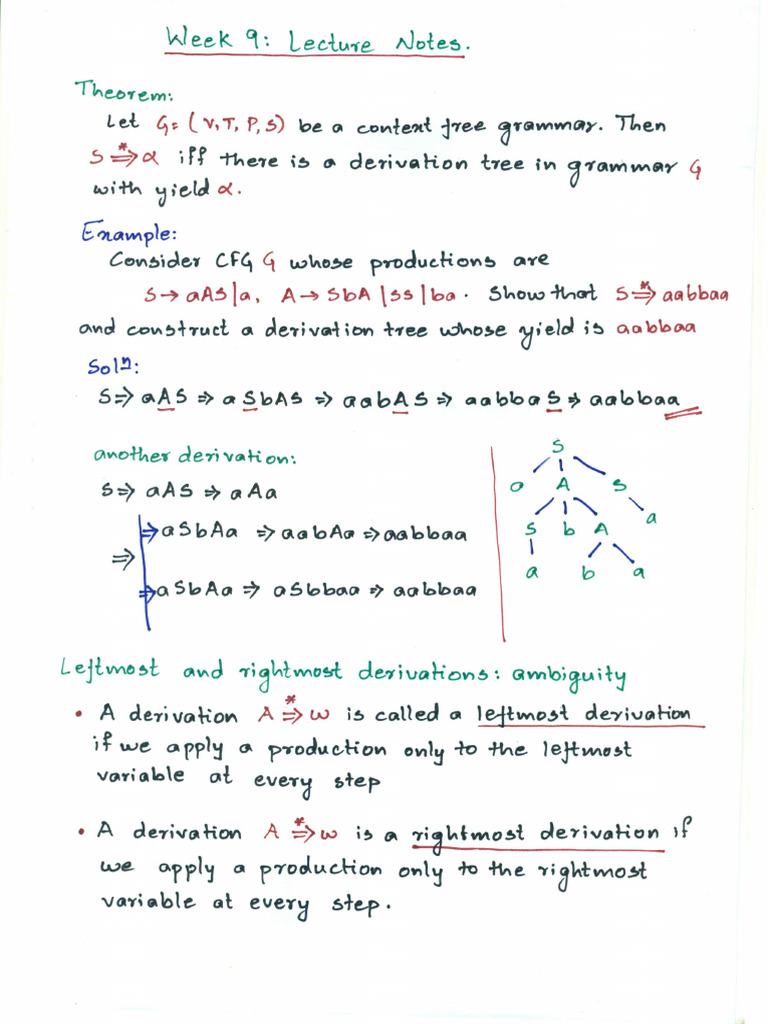 Week 9: Lecture Notes.
Theorem:
Let G = (V, T, P, S) be a context free grammar. Then
S ⇒* α iff there is a derivation tree in grammar G
with yield α.
Example:
Consider CFG G whose productions are
S → aAS | a, A → SbA | SS | ba. Show that S ⇒* aabbaa
and construct a derivation tree whose yield is aabbaa
Solⁿ:
S ⇒ aAS ⇒ aSbAS ⇒ aabAS ⇒ aabbaS ⇒ aabbaa
another derivation:
S ⇒ aAS ⇒ aAa
⇒ aSbAa ⇒ aabAa ⇒ aabbaa
⇒
⇒ aSbAa ⇒ aSbbaa ⇒ aabbaa
S
a A S
S b A a
a b a
Leftmost and rightmost derivations: ambiguity
• A derivation A ⇒* w is called a leftmost derivation
if we apply a production only to the leftmost
variable at every step
• A derivation A ⇒* w is a rightmost derivation if
we apply a production only to the rightmost
variable at every step.